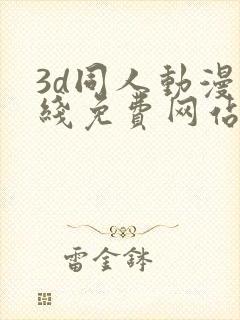 3d同人動漫
綫免費网佔
雷金鉢